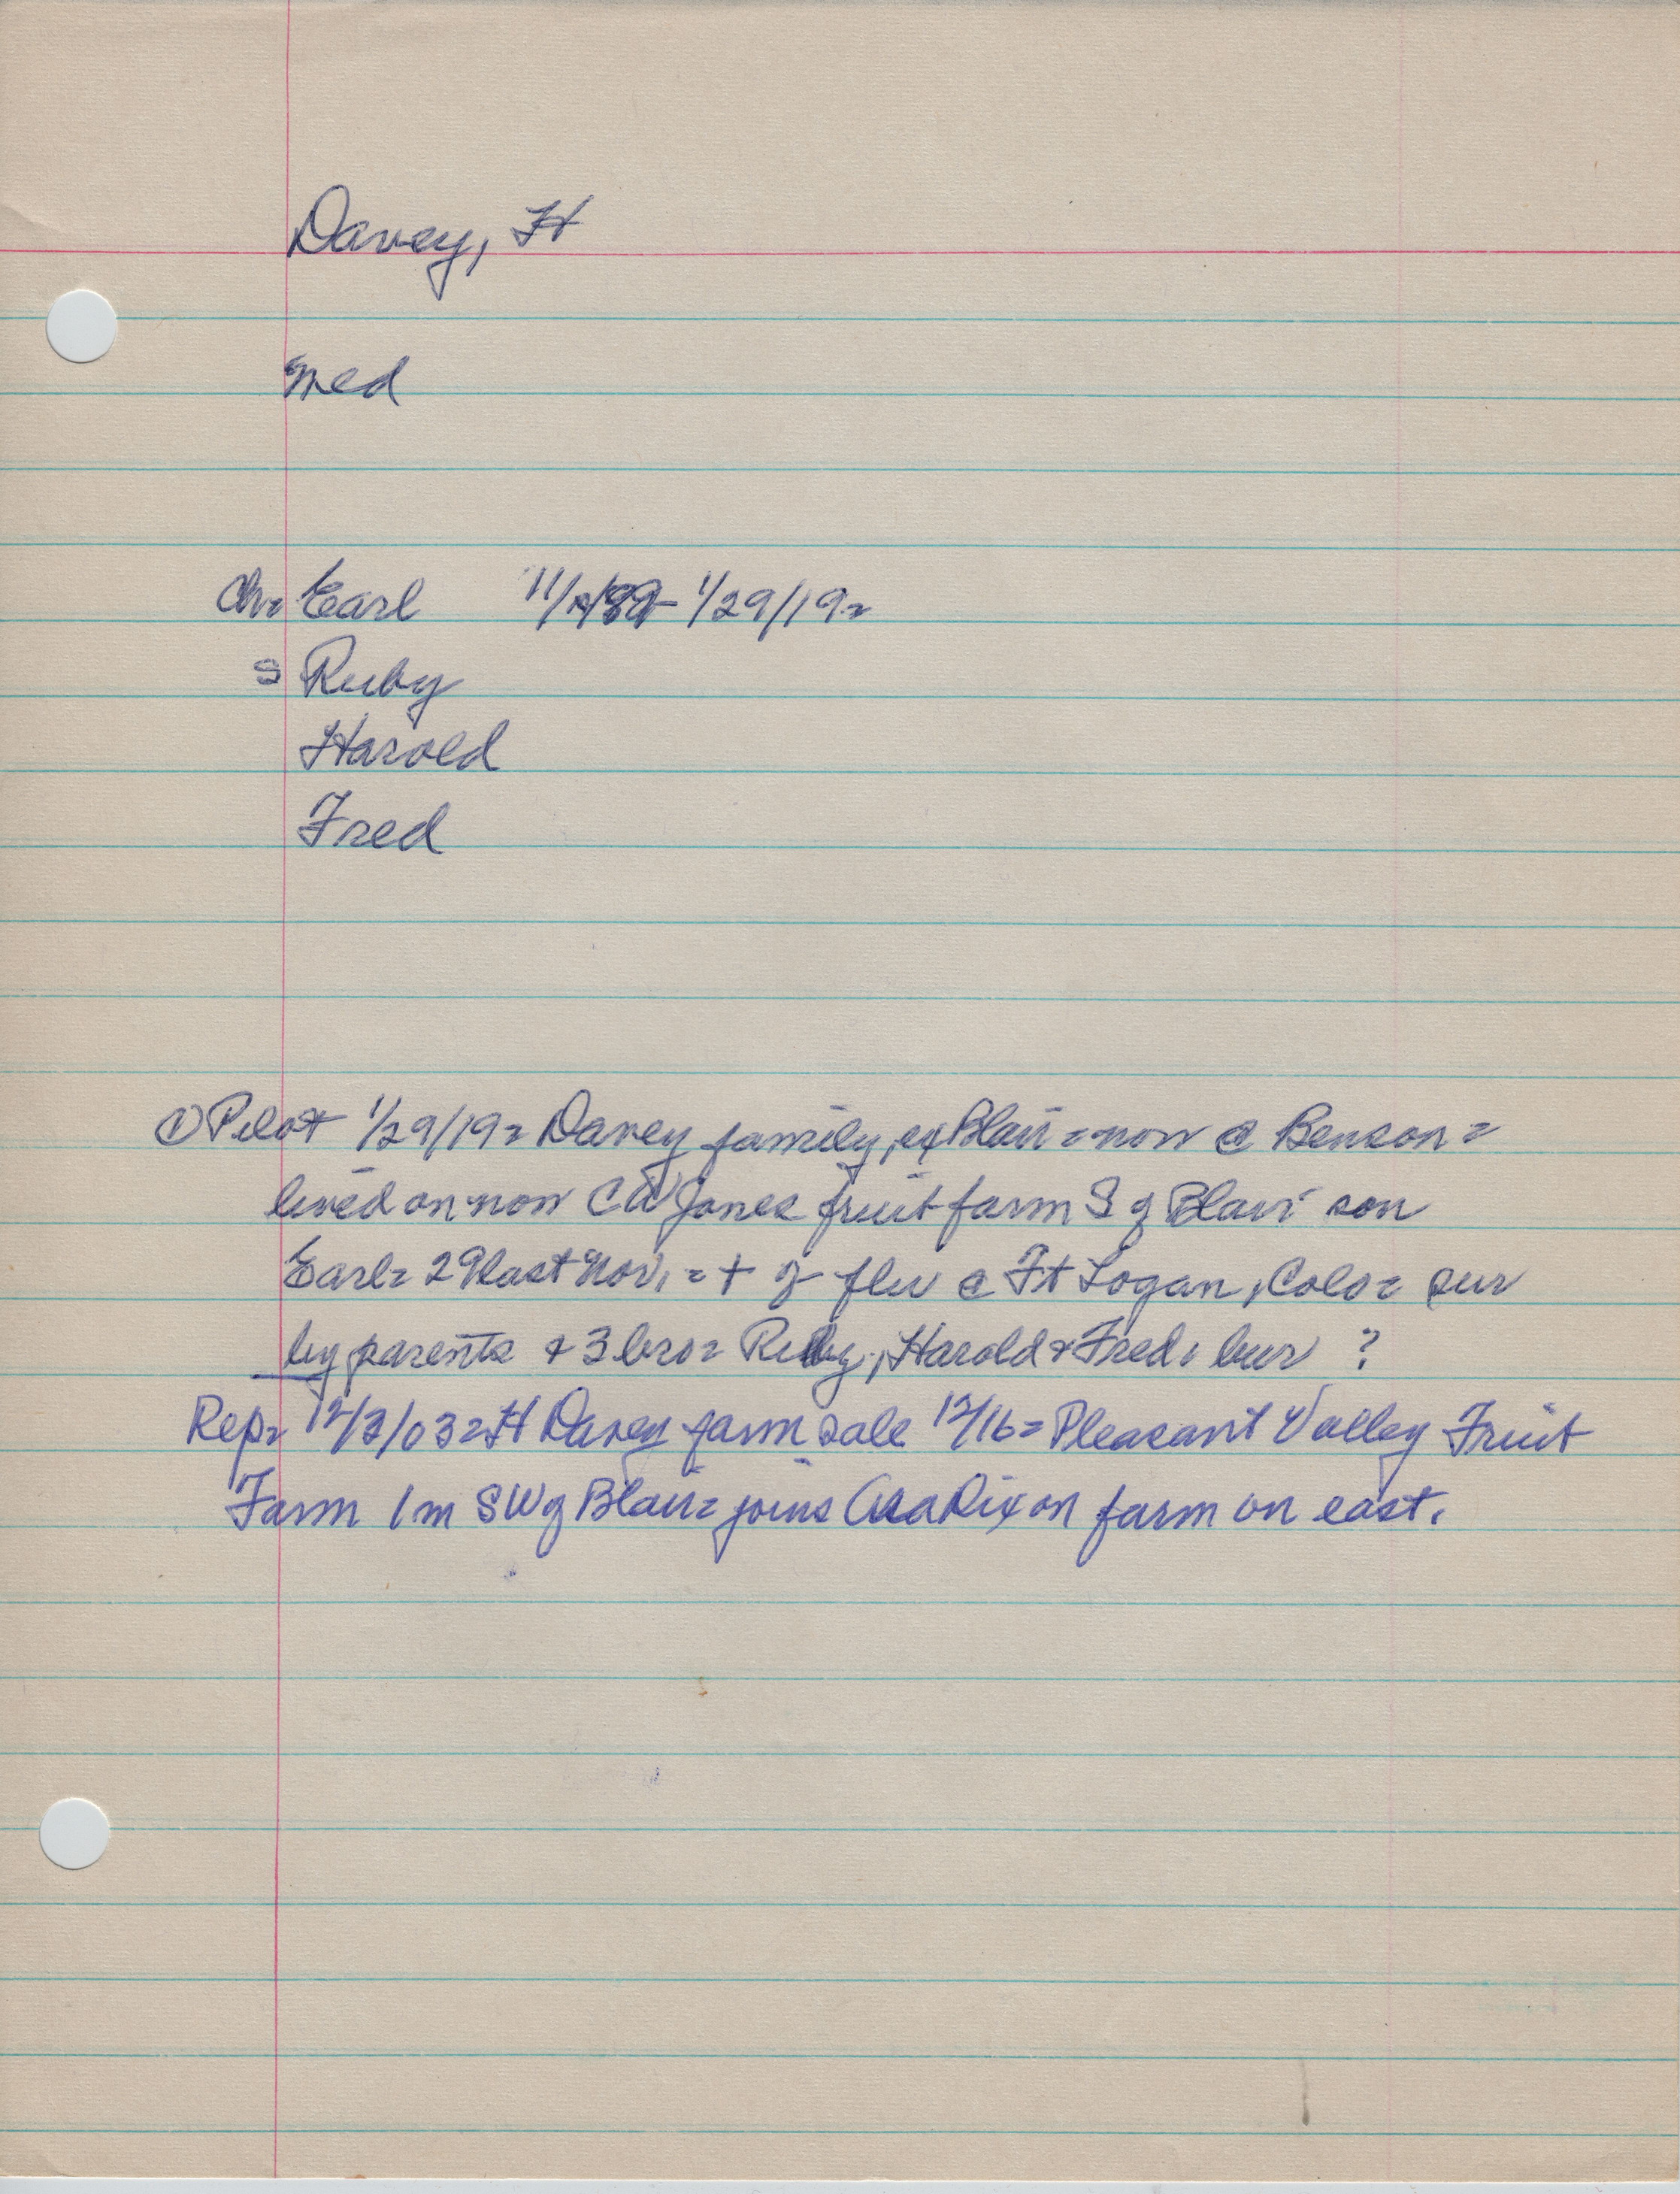 Davey, H
Med
Ch= Earl 11/ /89- 1/29/19=
S Ruby
Harold
Fred
① Pilot 1/29/19= Davey family, ex Blair = now @ Benson =
lived on now CW Jones fruit farm S of Blair son
Earl= 29 last Nov, = + of flu @ Ft Logan, Colo= sur
by parents + 3 bro= Ruby, Harold + Fred, bur ?
Rep= 12/3/03= H Davey farm sale 12/16= Pleasant Valley Fruit
Farm 1 m SW of Blair= joins Asa Dixon farm on east.